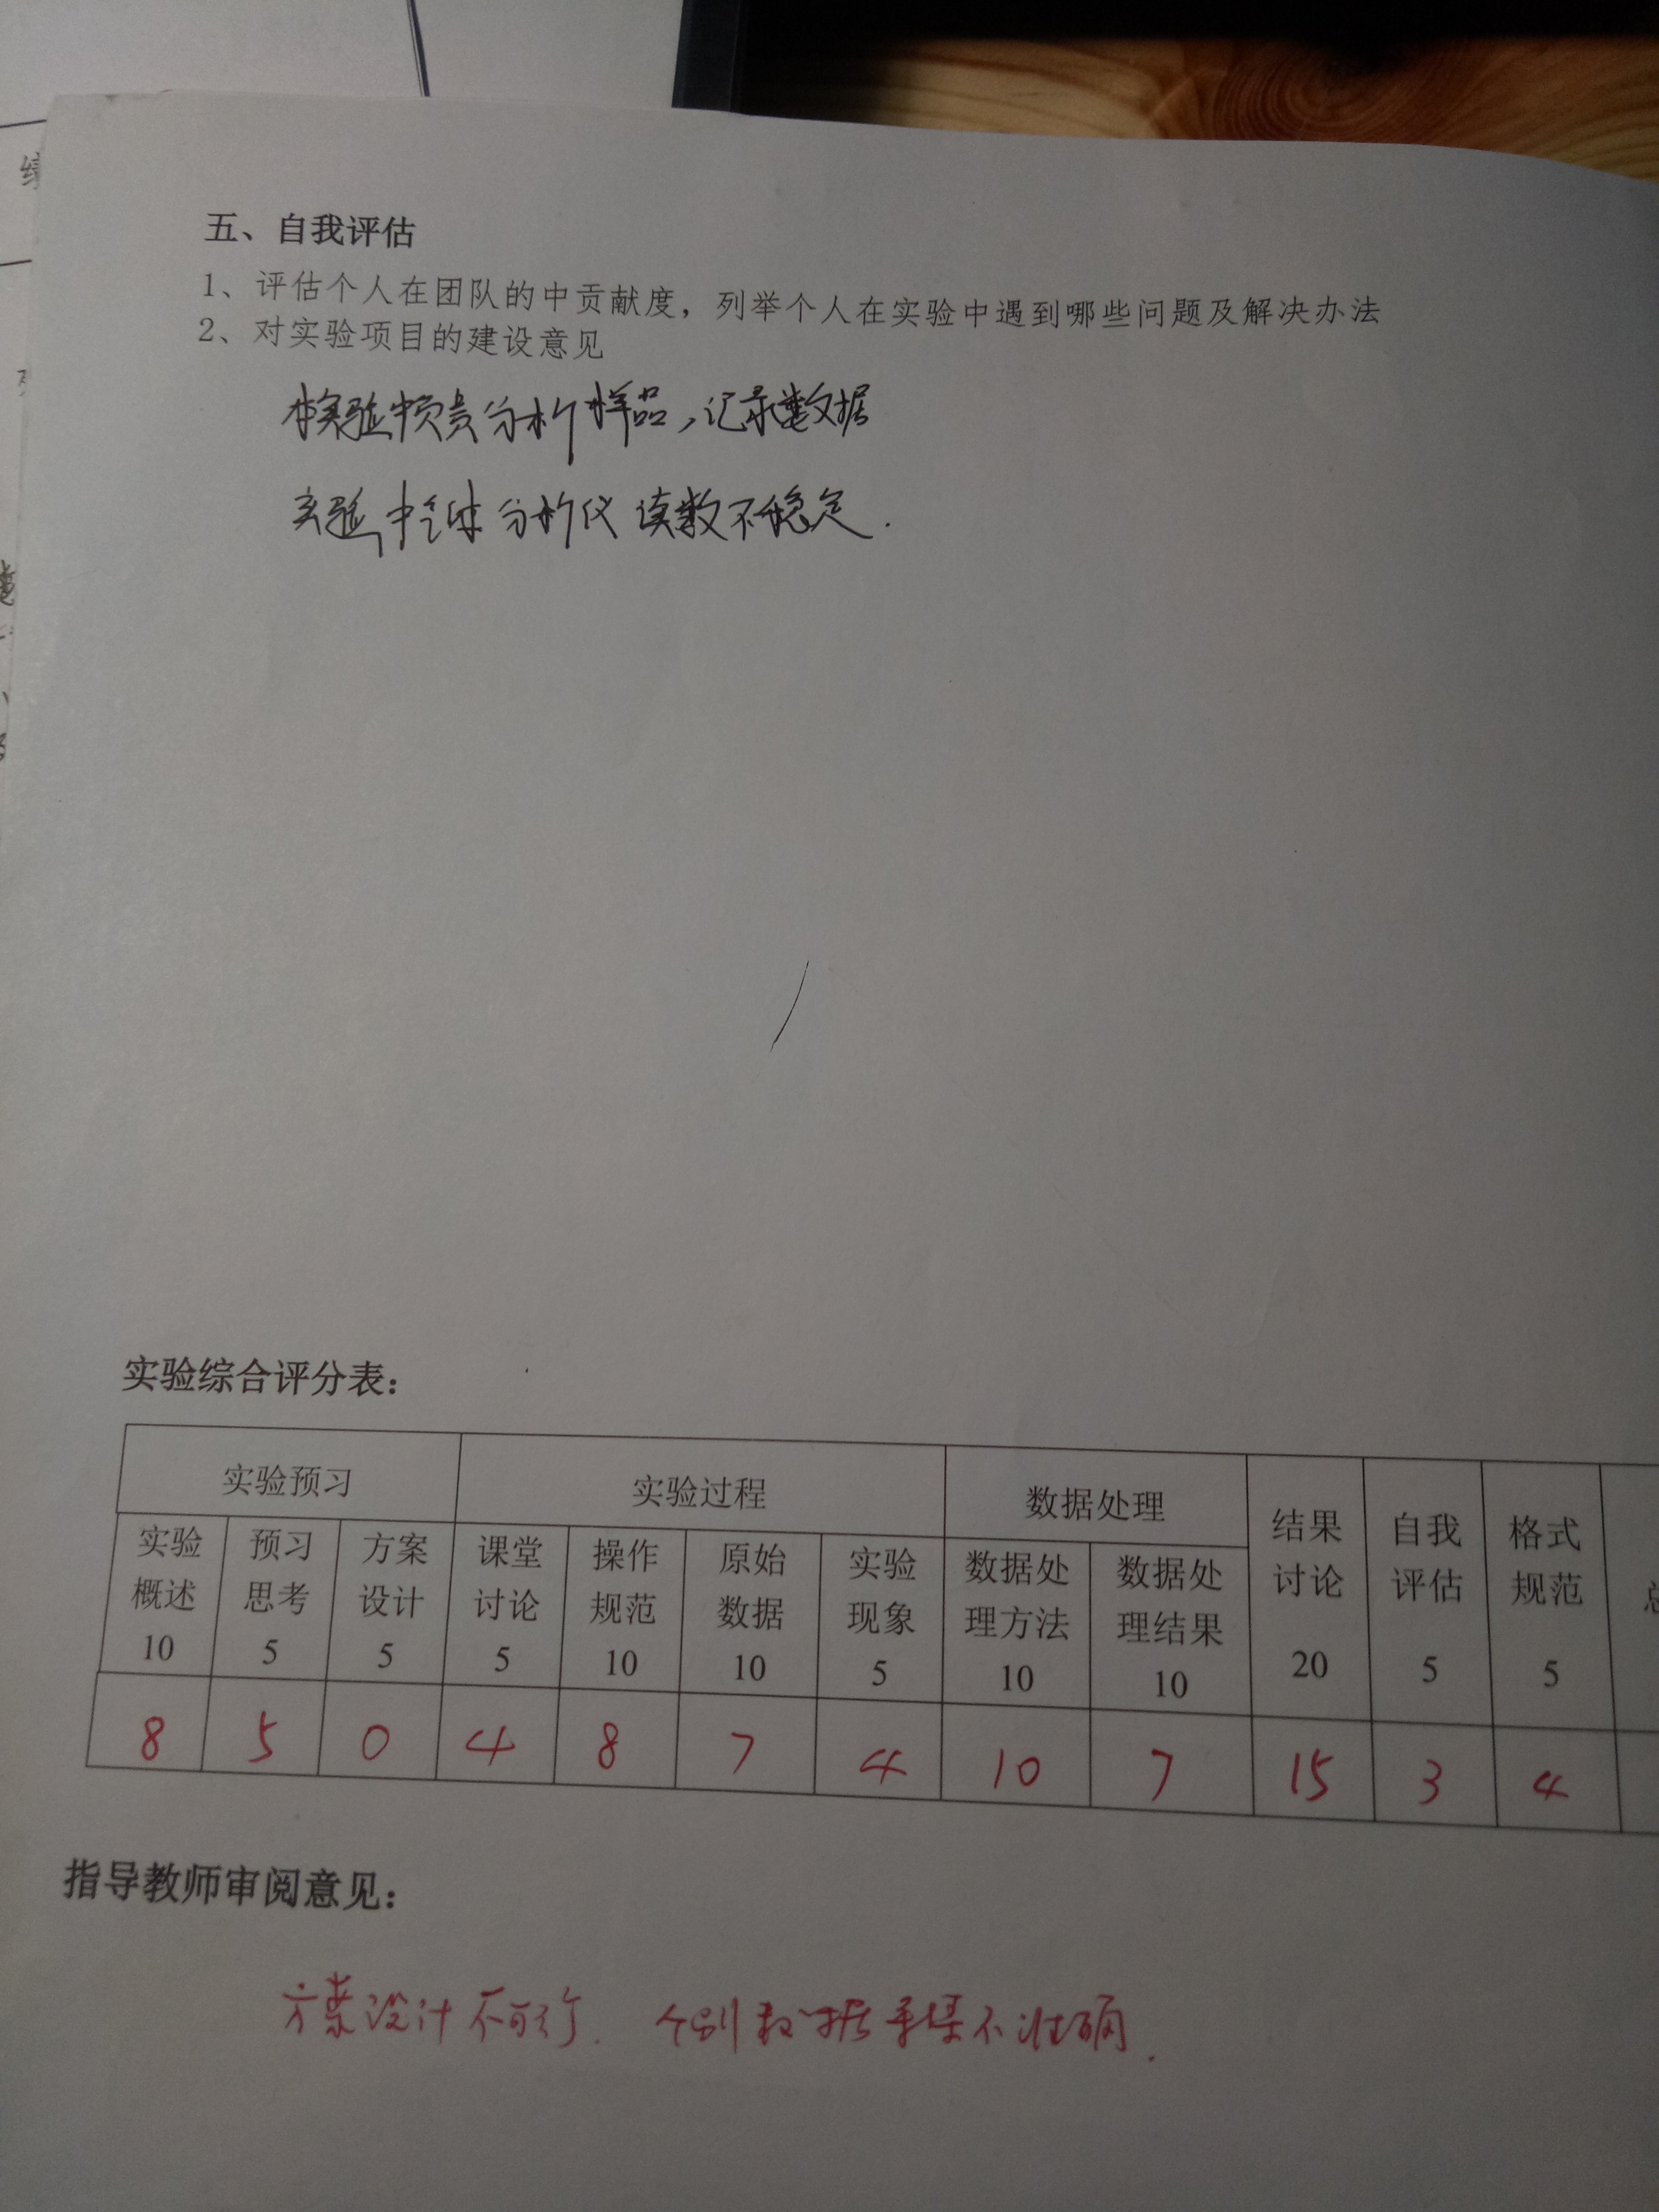 五、自我评估
1、评估个人在团队的中贡献度，列举个人在实验中遇到哪些问题及解决办法
2、对实验项目的建设意见
本实验中负责分析样品，记录数据
实验中气体分析仪读数不稳定.
实验综合评分表：
实验预习 实验过程 数据处理 结果讨论 20 自我评估 5 格式规范 5
实验概述 10 预习思考 5 方案设计 5 课堂讨论 5 操作规范 10 原始数据 10 实验现象 5 数据处理方法 10 数据处理结果 10
8 5 0 4 8 7 4 10 7 15 3 4
指导教师审阅意见：
方案设计不可行. 个别数据采集不准确.